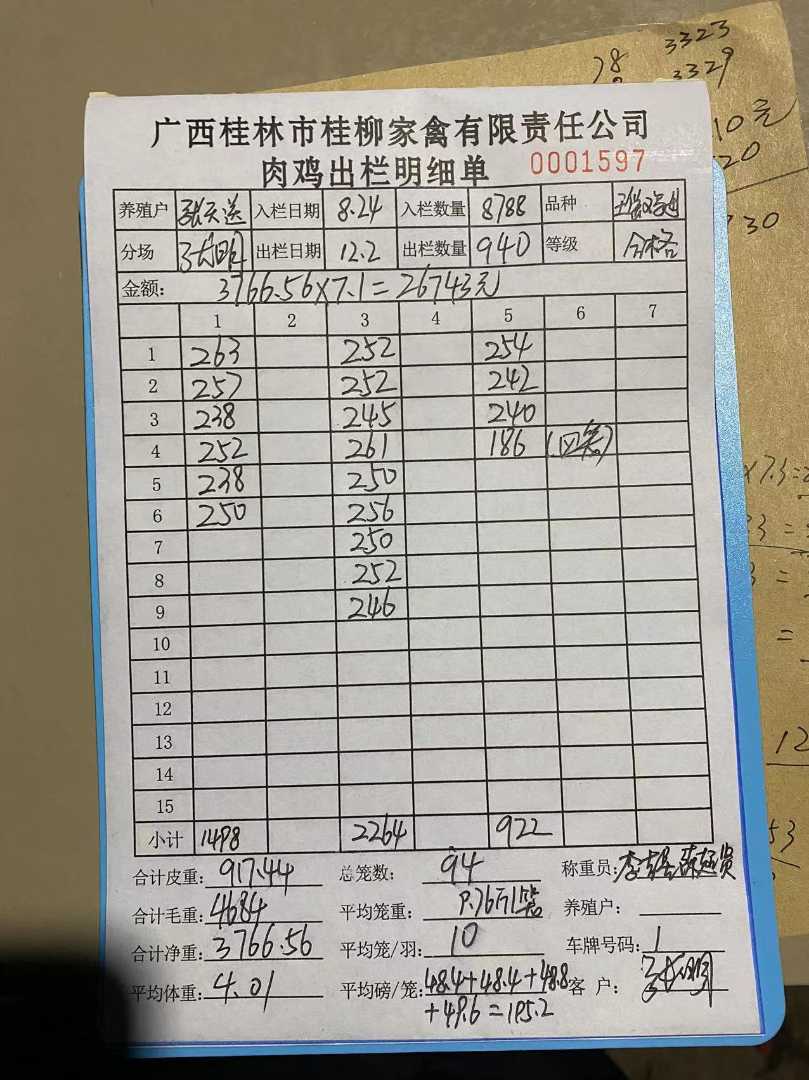 3323
28 3329
10元
20
730
广西桂林市桂柳家禽有限责任公司
肉鸡出栏明细单 0001597
养殖户 张天送 入栏日期 8.24 入栏数量 8788 品种
分场 出栏日期 12.2 出栏数量 940 等级 合格
金额: 3766.56×7.1=26743元
1 2 3 4 5 6 7
1 263 252 254
2 257 252 242
3 238 245 240
4 252 261 186 (四笼)
5 238 250
6 250 256
7 250
8 252
9 246
10
11
12
13
14
15
小计 1498 2264 922
合计皮重: 917.44 总笼数: 94 称重员:
合计毛重: 4684 平均笼重: 9.76斤/笼 养殖户:
合计净重: 3766.56 平均笼/羽: 10 车牌号码: 1
平均体重: 4.01 平均磅/笼: 48.4+48.4+48.8 客 户:
+49.6=195.2
×7.3=
3=
=
12
53